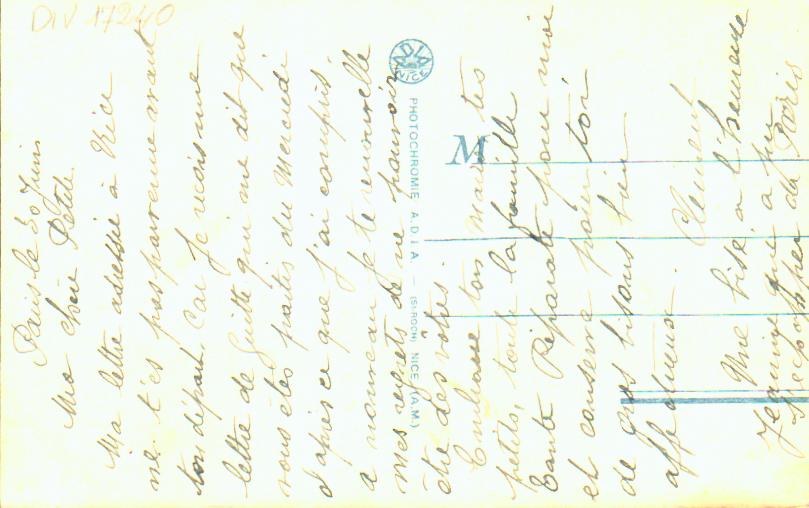 DIV 17240
Paris le 30 Juin
Ma chère Petite
Ma lettre adressée à Nice
ne t'es pas parvenue avant
ton départ. Car je reçois une
lettre de Guitte qui me dit que
vous êtes parties du Mercredi
d'après ce que j'ai compris.
a nouveau je te renouvelle
mes regrets de ne pouvoir
être des votres.
Embrasse ton Mari tes
petits, toute la famille
Tante Réparate pour moi
et conserve pour toi
de gros bisous bien
affectueux. Clement
Une bise a l'heureuse
qui a pu
de Paris
ADIA
NICE
PHOTOCHROMIE A.D.I.A. — (St-ROCH) NICE (A.M.)
M